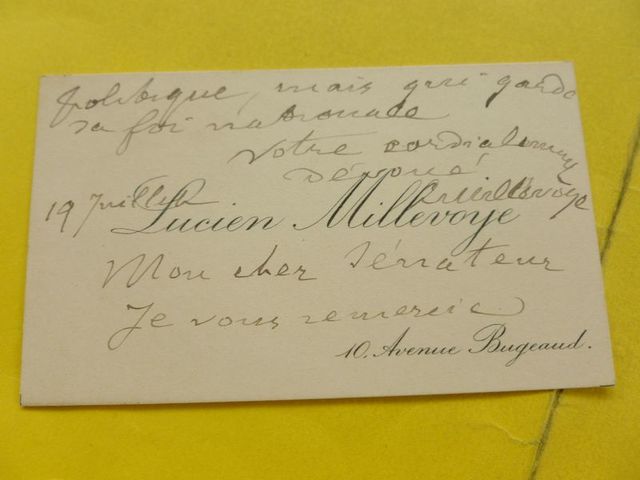 politique, mais qui garde
sa foi nationale
Votre cordialement
Dévoué
LMillevoye
19 Juillet
Lucien Millevoye
Mon cher Sénateur
Je vous remercie
10. Avenue Bugeaud.